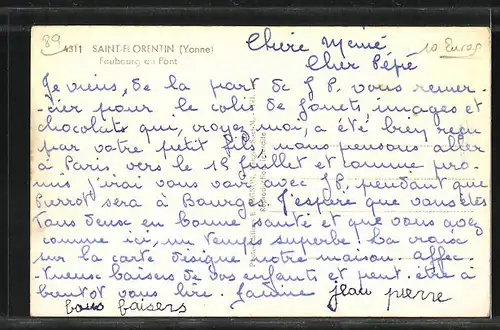 89
4311 SAINT-FLORENTIN (Yonne)
Faubourg du Pont
10 Euros
Chère Mémé
Cher Pépé
Je viens, de la part de J P. vous remer-
-cier pour le colis de jouets, images et
chocolats qui, croyez moi, a été bien reçu
par votre petit fils, nous pensons aller
à Paris vers le 15 Juillet et comme pro
mis j'irai vous voir avec JP. pendant que
Pierrot sera à Bourg. J'espère que vous êtes
tous deux en bonne santé et que vous avez
comme ici, un temps superbe. La croix
sur la carte désigne notre maison. Affec-
-tueux baisers de vos enfants et peut-être à
bientôt vous lire. Janine
jean pierre
bons baisers